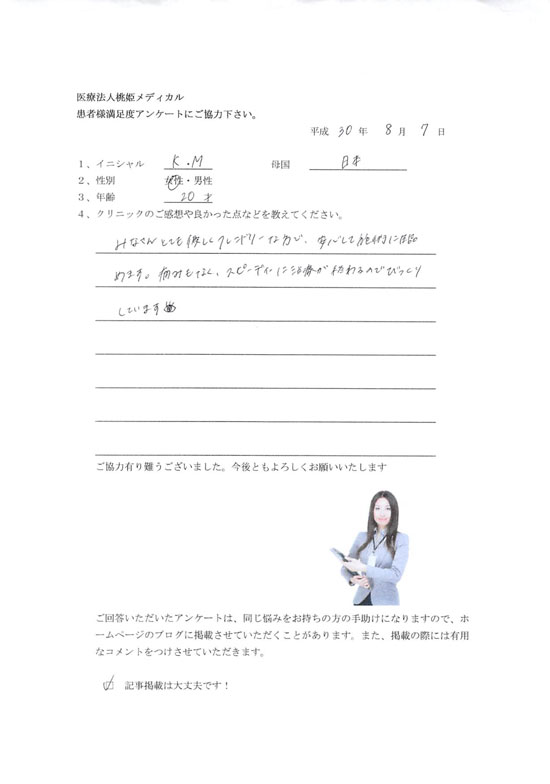 医療法人桃姫メディカル
患者様満足度アンケートにご協力下さい。
平成 30 年 8 月 7 日
1、イニシャル K.M 母国 日本
2、性別 女性・男性
3、年齢 20 才
4、クリニックのご感想や良かった点などを教えてください。
みなさんとても優しくフレンドリーな方で、安心して施術に臨
めます。痛みもなく、スピーディに治療が終わるのでびっくり
しています
ご協力有り難うございました。今後ともよろしくお願いいたします
ご回答いただいたアンケートは、同じ悩みをお持ちの方の手助けになりますので、ホ
ームページのブログに掲載させていただくことがあります。また、掲載の際には有用
なコメントをつけさせていただきます。
記事掲載は大丈夫です！